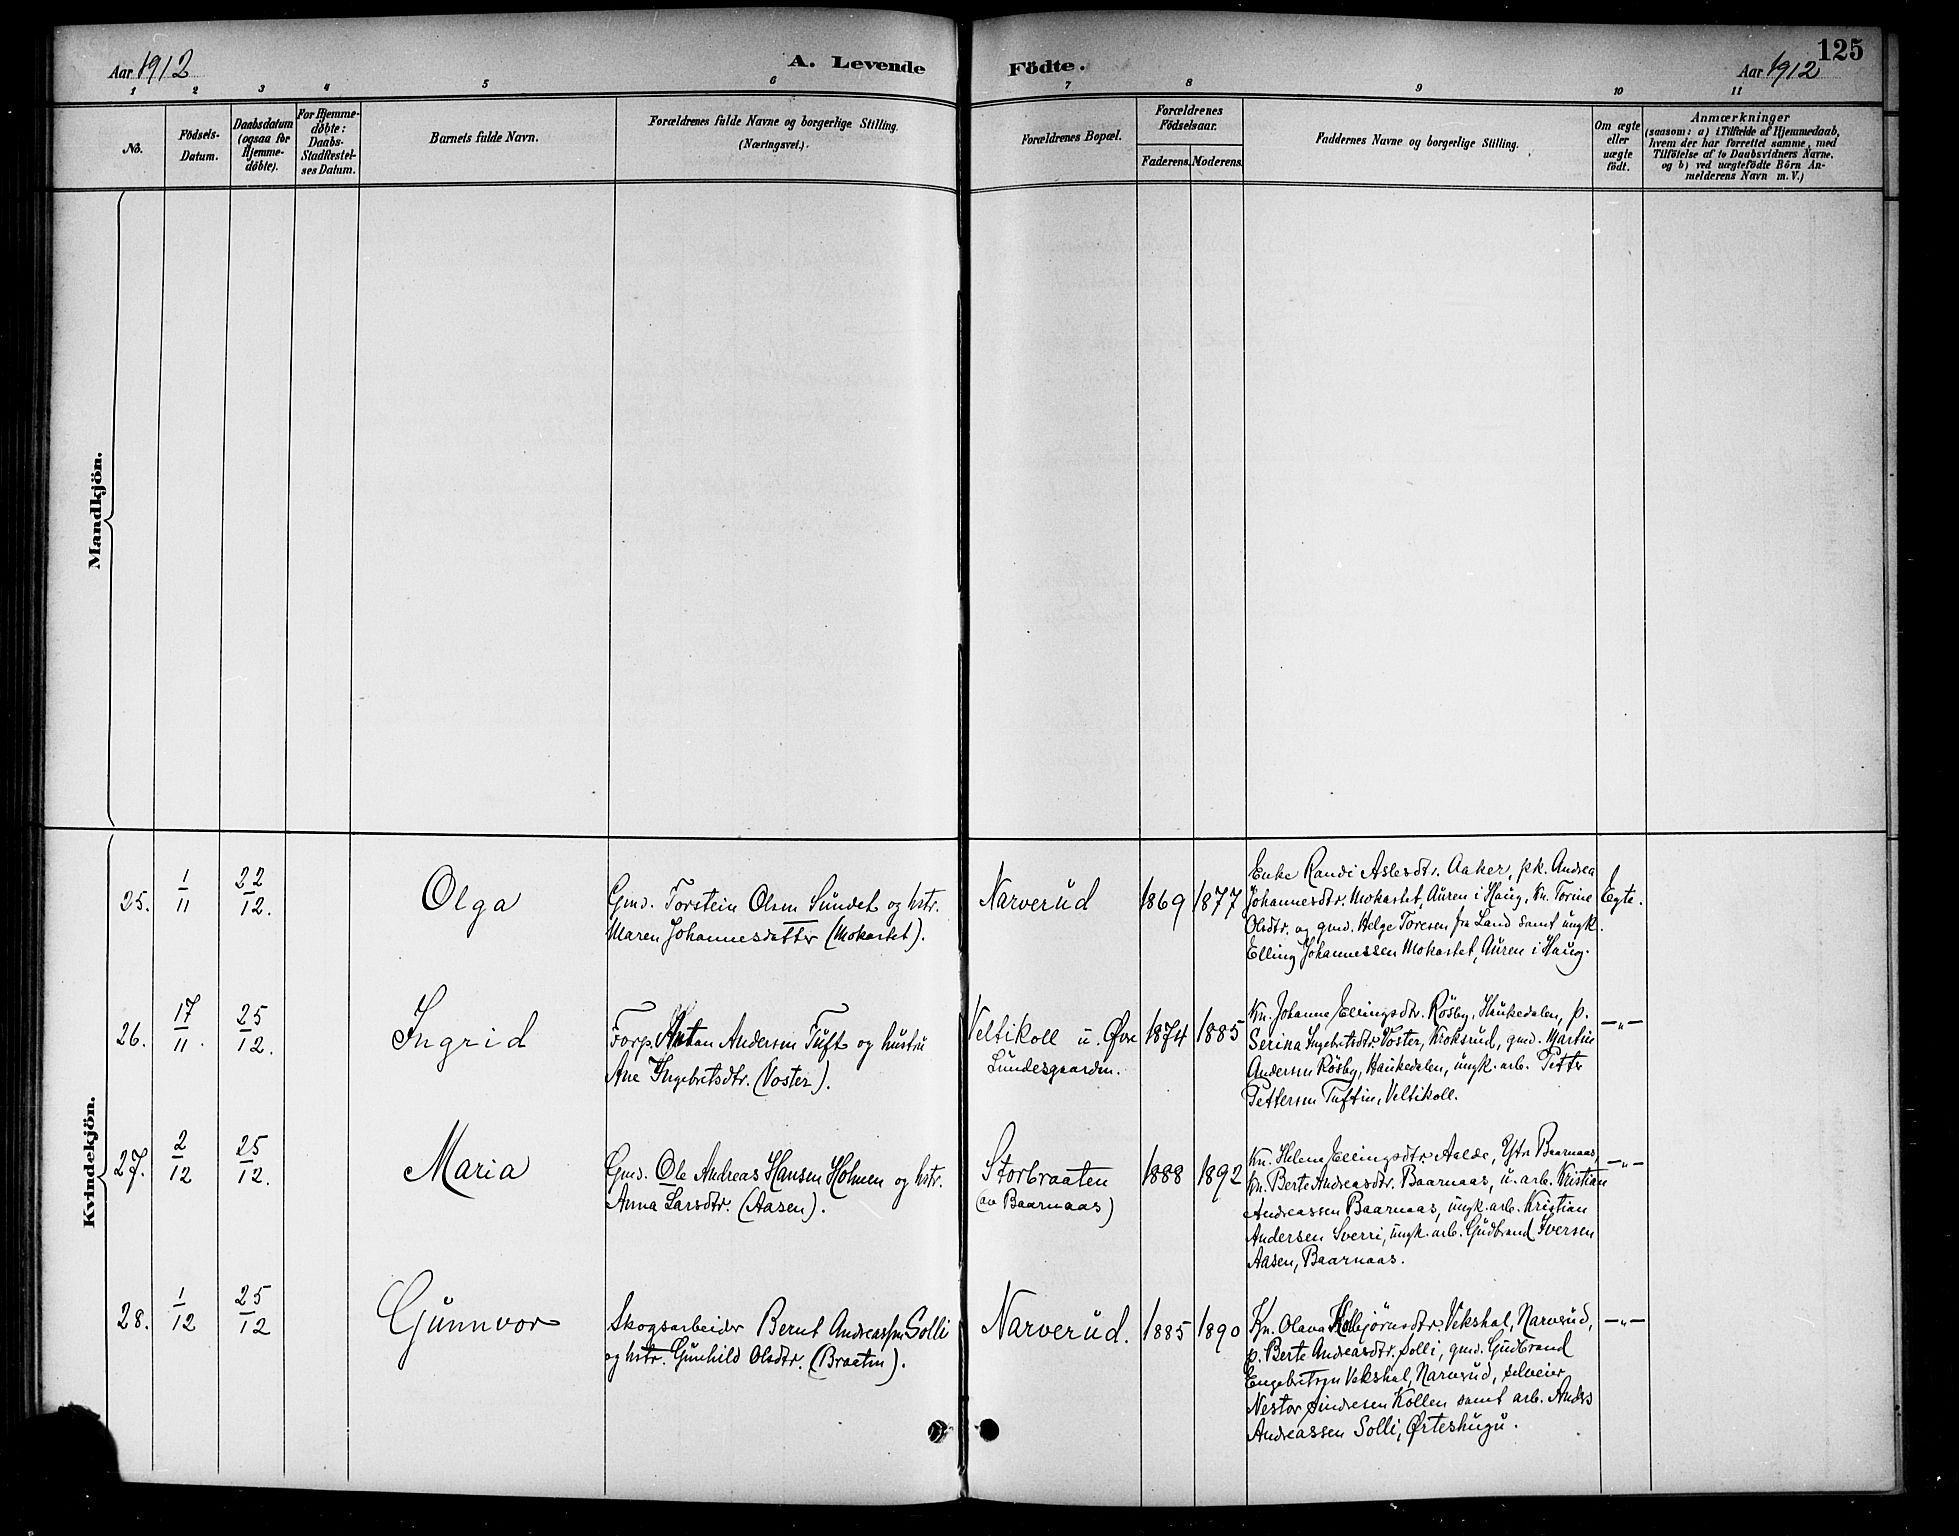 Aar 1912
A. Levende Födte.
Aar 1912
125
1 2 3 4 5 6 7 8 9 10 11
No.
Födsels-
Datum.
Daabsdatum
(ogsaa for
Hjemme-
døbte).
For Hjemme-
døbte:
Daabs-
Stadfæstel-
ses Datum.
Barnets fulde Navn.
Forældrenes fulde Navne og borgerlige Stilling.
(Næringsvei.).
Forældrenes Bopæl.
Forældrenes
Födselsaar.
Faderens. Moderens.
Faddernes Navne og borgerlige Stilling.
Om ægte
eller
uægte
födt.
Anmærkninger
(saasom: a) i Tilfælde af Hjemmedaab,
hvem der har forrettet samme, med
Tilföielse af to Daabsvidners Navne.
og b) ved uægtefödte Börn An-
melderens Navn m. V.)
Mandkjön.
Kvindekjön.
25.
1/11
22/12.
Olga
Gmd. Torstein Olsen Sundet og hstr.
Maren Johannesdatter (Mokastet).
Narverud
1869
1877
Enke Randi Aslesdtr. Aaker, pk. Andrea
Johannesdtr. Mokastet, Auren i Haug, Kn. Torine
Olsdtr. og gmd. Helge Toresen fra Land samt ungk.
Elling Johannessen Mokastet, Auren i Haug.
Egte.
26.
17/11.
25/12.
Ingrid
Forp. Anton Andersen Tuft og hustru
Ane Ingebretsdtr. (Voster).
Veltikoll u. Øvre
Lundesgaarden.
1874
1885
Kn. Johanne Ellingsdtr. Rösby, Haukedalen, p.
Serina Ingebretsdtr. Voster, Kroksrud, gmd. Martin
Andersen Rösby, Haukedalen, ungk. arb. Petter
Pettersen Tuftin, Veltikoll.
—„—
27.
2/12
25/12.
Maria
Gmd. Ole Andreas Hansen Holmen og hstr.
Anna Larsdtr. (Aasen).
Storbraaten
(av Baarnaas)
1888
1892
Kn. Helene Ellingsdtr Aalde, Ytre Baarnaas,
Kn. Berte Andreasdtr. Baarnaas, u. arb. Kristian
Andreassen Baarnaas, ungk. arb. Kristian
Andersen Sverri, ungk. arb. Gudbrand Iversen
Aasen, Baarnaas.
—„—
28.
1/12
25/12
Gunnvor
Skogsarbeider Bernt Andreassen Solli
og hstr. Gunhild Olsdtr. (Braaten).
Narverud.
1885
1890
Kn. Olava Kolbjörnsdtr. Vekshal, Narverud,
p. Berte Andreasdtr. Solli, gmd. Gudbrand
Engebretsen Vekshal, Narverud, selveier
Nestor Sindresen Kollen samt arb. Anders
Andreassen Solli, Ørteshugu.
—„—